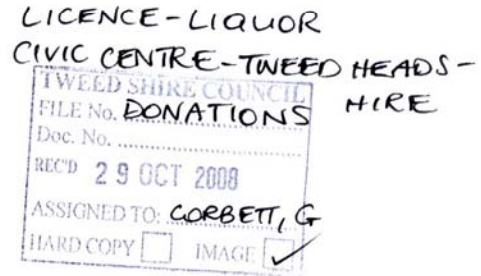 LICENCE-LIQUOR
CIVIC CENTRE-TWEED HEADS-
HIRE
TWEED SHIRE COUNCIL
FILE No. DONATIONS
Doc. No. ..................
REC'D 29 OCT 2008
ASSIGNED TO: CORBETT, G
HARD COPY IMAGE ✓